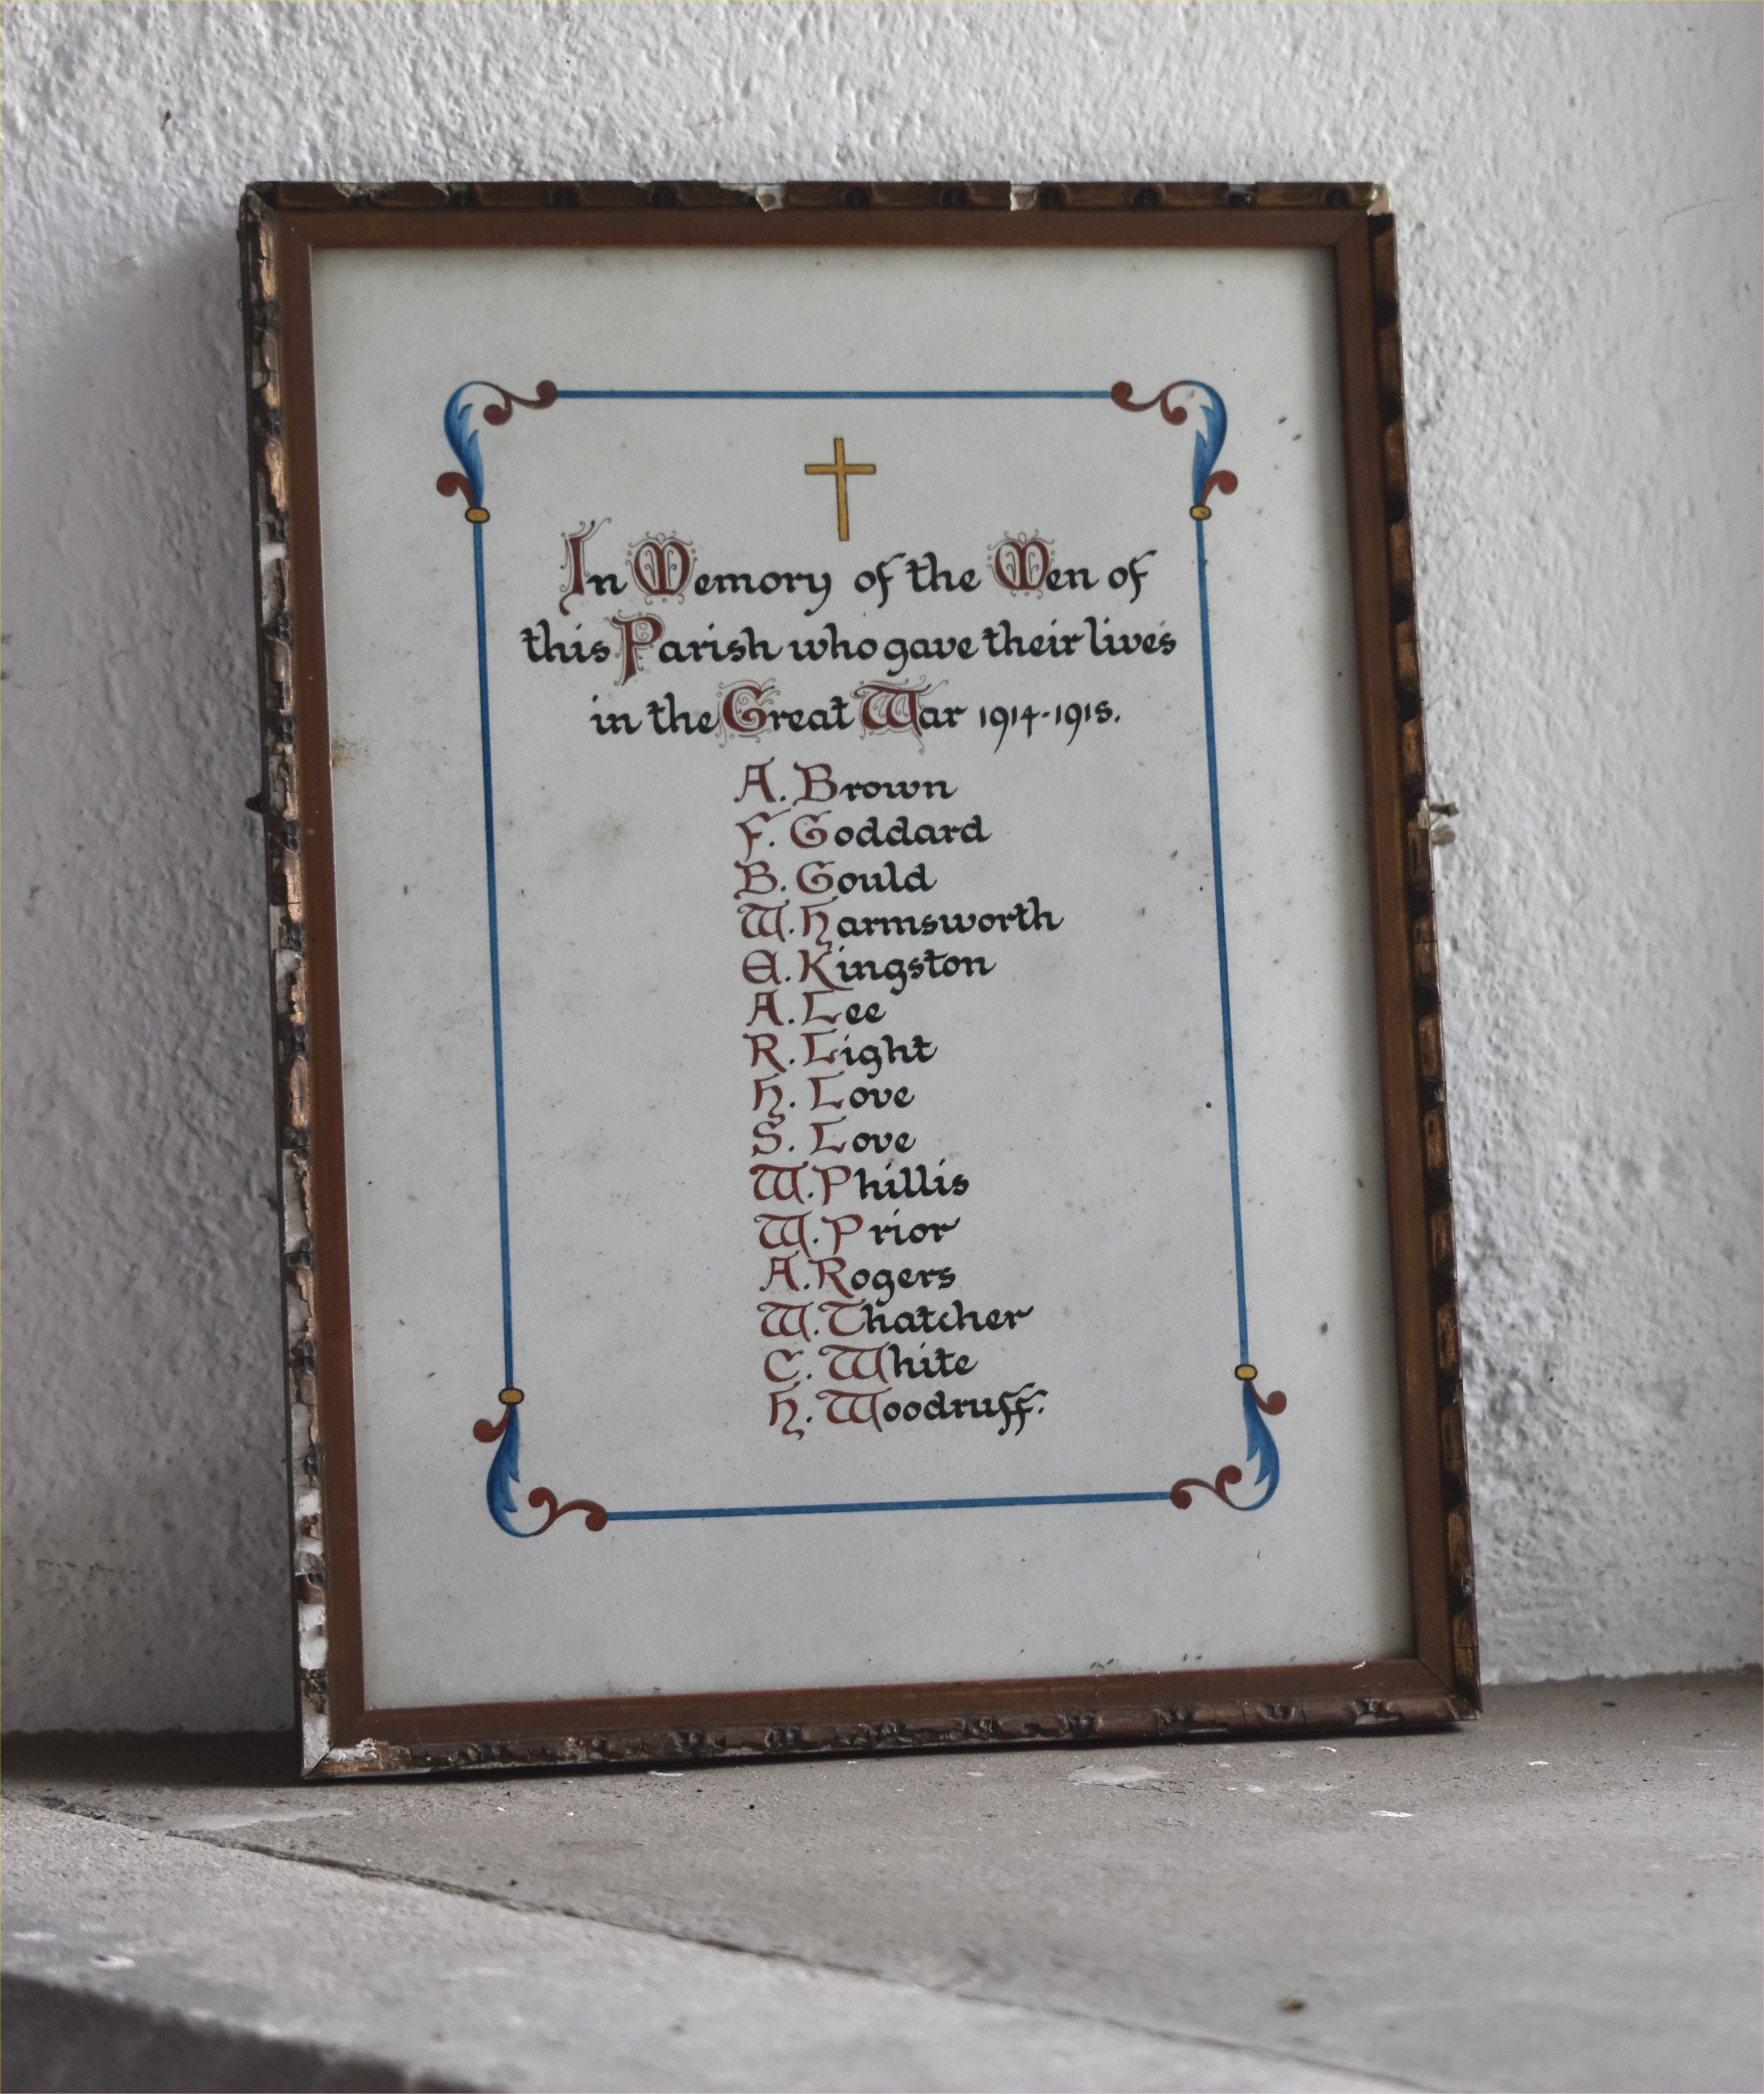 In Memory of the Men of
this Parish who gave their lives
in the Great War 1914-1918.
A. Brown
F. Goddard
B. Gould
W. Harmsworth
E. Kingston
A. Lee
R. Light
H. Love
S. Love
W. Phillis
W. Prior
A. Rogers
W. Thatcher
C. White
H. Woodruff.